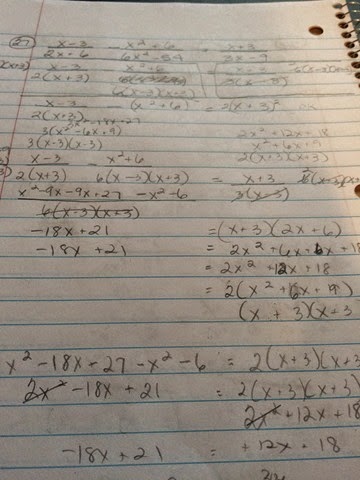 27) x-3 / 2x+6 - x²+6 / 6x²-54 = x+3 / 3x-9
x-3 / 2(x+3) x²+6 / 6(x-3)(x+3) 3(x-3)
x-3 / 2(x+3) - (x²+6) = 2(x+3)²
3(x²-6x+9) 2x²+12x+18
3(x-3)(x-3) x²+6x+9
2(x+3)(x+3)
x-3 / 2(x+3) - x²+6 / 6(x-3)(x+3) = x+3 / 3(x-3)
x²-9x-9x+27 -x²-6 / 6(x-3)(x+3)
-18x+21 =(x+3)(2x+6)
-18x+21 = 2x²+6x+6x+18
= 2x²+12x+18
= 2(x²+6x+9)
(x+3)(x+3
x²-18x+27-x²-6 = 2(x+3)(x+3)
2x² -18x+21 = 2(x+3)(x+3)
2x²+12x+18
-18x+21 = +12x+18